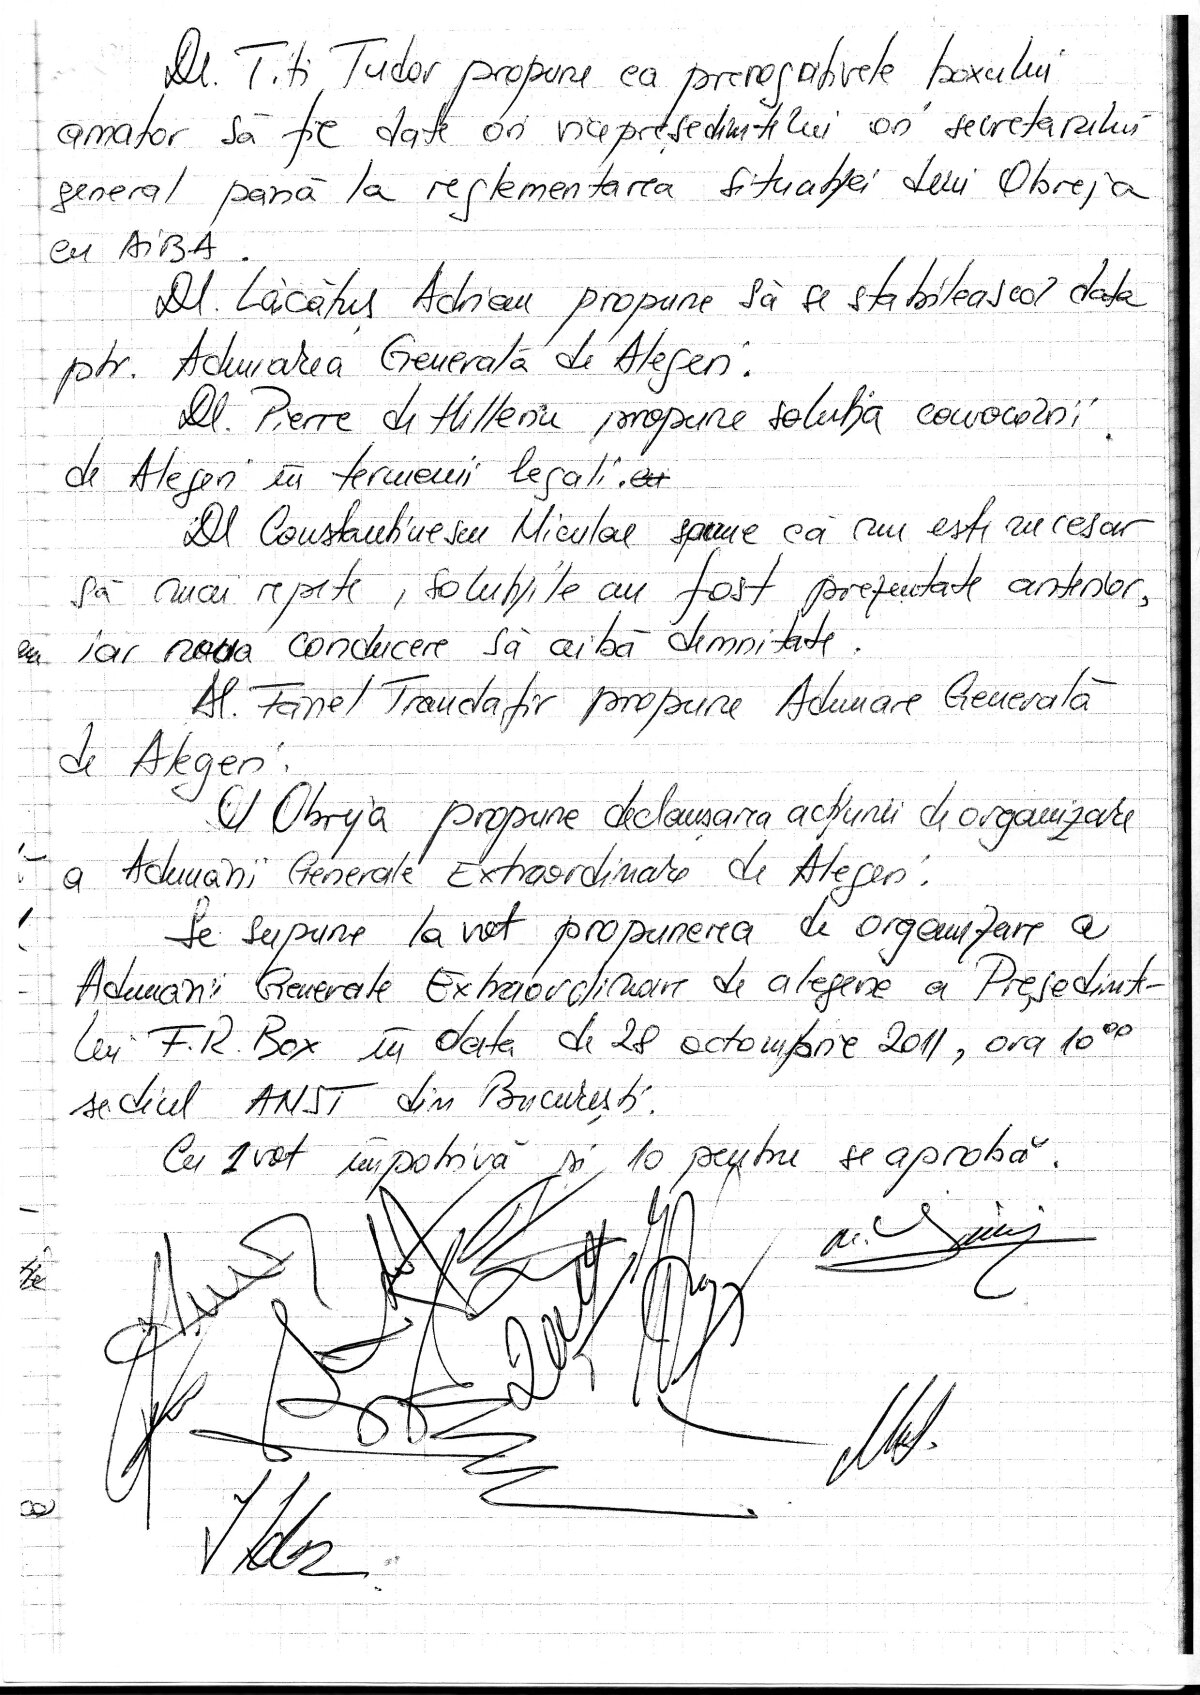 Dl. Titi Tudor propune ca prerogativele boxului
amator să fie date ori vicepreședintelui ori secretarului
general până la reglementarea situației dlui Obreja
cu AIBA.
Dl. Lăcătuș Adrian propune să se stabilească data
ptr. Adunarea Generală de Alegeri.
Dl. Pierre de Hillerin propune soluția convocării
de Alegeri în termenii legali.
Dl Constantinescu Nicolae spune că nu este necesar
să mai repete, soluțiile au fost prezentate anterior,
iar noua conducere să aibă demnitate.
Dl. Fănel Trandafir propune Adunare Generală
de Alegeri.
Dl Obreja propune declanșarea acțiunii de organizare
a Adunării Generale Extraordinare de Alegeri.
Se supune la vot propunerea de organizare a
Adunării Generale Extraordinare de alegere a Președinte-
lui F.R. Box în data de 28 octombrie 2011, ora 10⁰⁰
sediul ANST din București.
Cu 1 vot împotrivă și 10 pentru se aprobă.